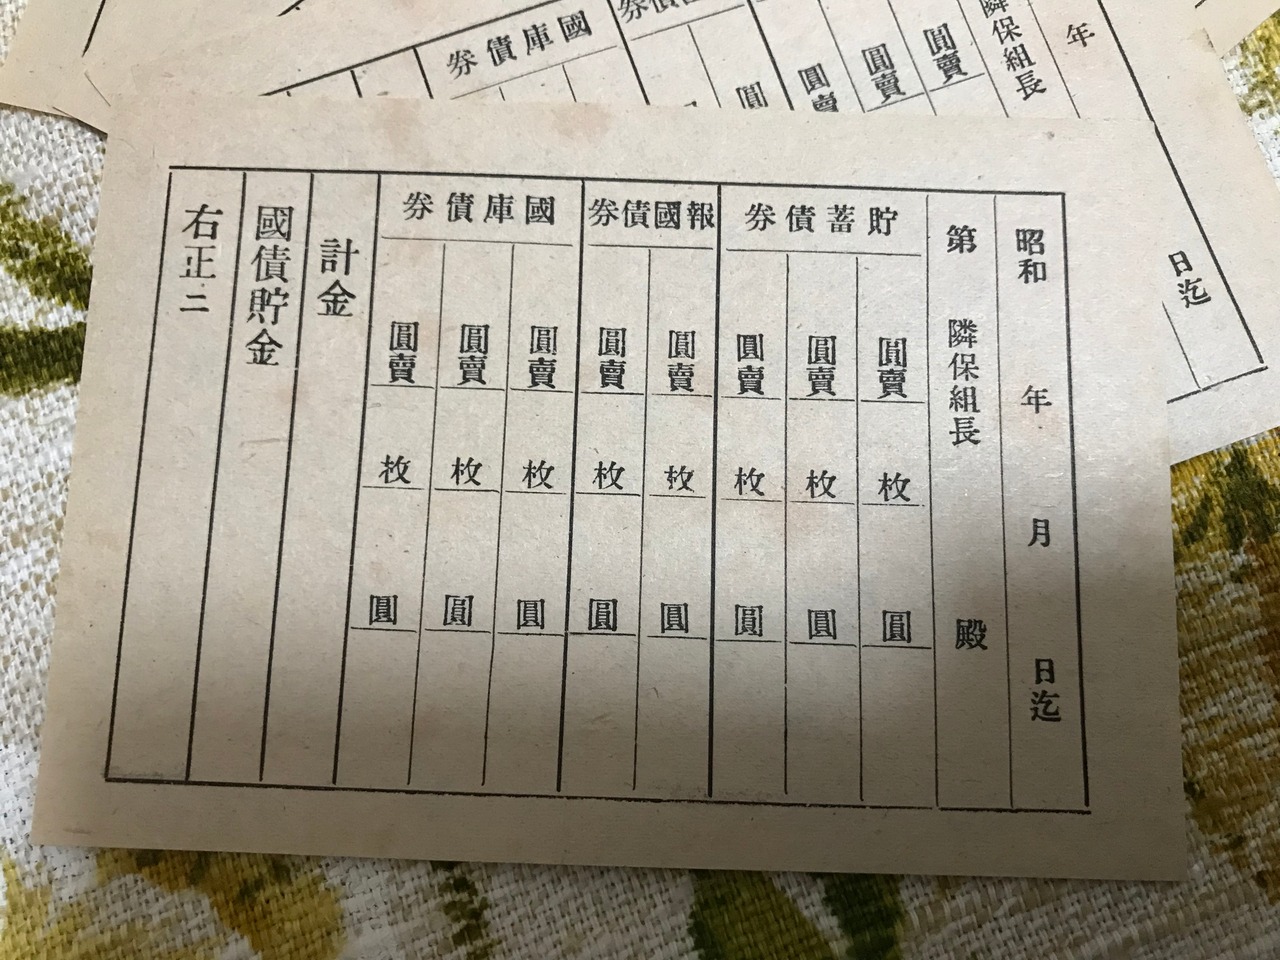 昭和 年 月 日迄
第 隣保組長 殿
貯蓄債券
圓賣 枚 圓
圓賣 枚 圓
圓賣 枚 圓
報國債券
圓賣 枚 圓
圓賣 枚 圓
國庫債券
圓賣 枚 圓
圓賣 枚 圓
圓賣 枚 圓
計金
國債貯金
右正ニ
年 日迄
隣保組長
圓賣
圓賣
圓賣
圓
國庫債券